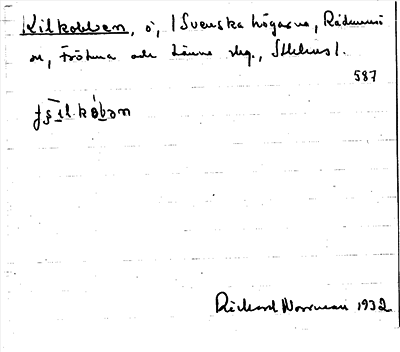 Kilkobben, ö, (Svenska högarna, Rådmansö
sn, Frötuna och Länna skg., Sthlms).
587
Richard Norrman 1932